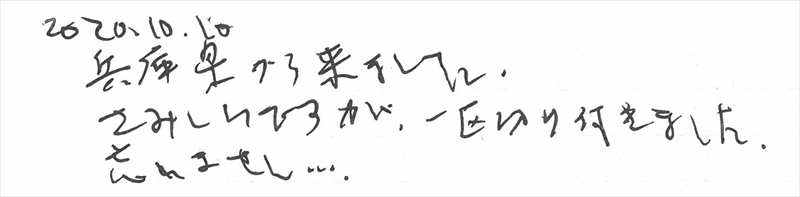 2020.10.10
兵庫県から来ました.
さみしいですが、一区切り付きました.
忘れません….